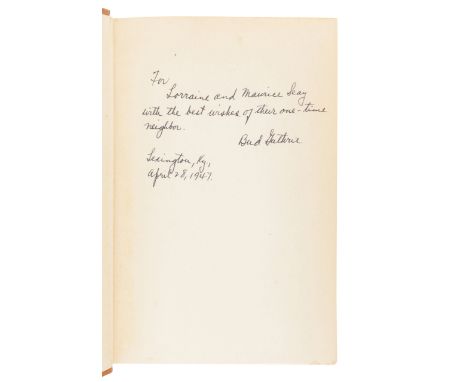 For
Lorraine and Maurice Seay
with the best wishes of their one-time
neighbor.
Bud Guthrie
Lexington, Ky,
April 28, 1947.